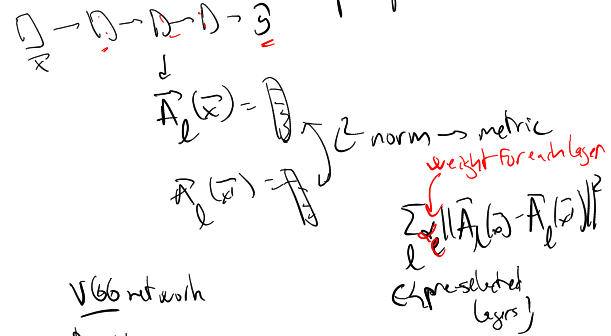 x⃗
ŝ
A⃗_ℓ(x⃗) =
L² norm → metric
weight for each layer
A⃗_ℓ(x⃗') =
∑_ℓ α_ℓ ||A⃗_ℓ(x⃗) - A⃗_ℓ(x⃗')||²
ℓ ∈ {pre-selected
layers}
VGG network